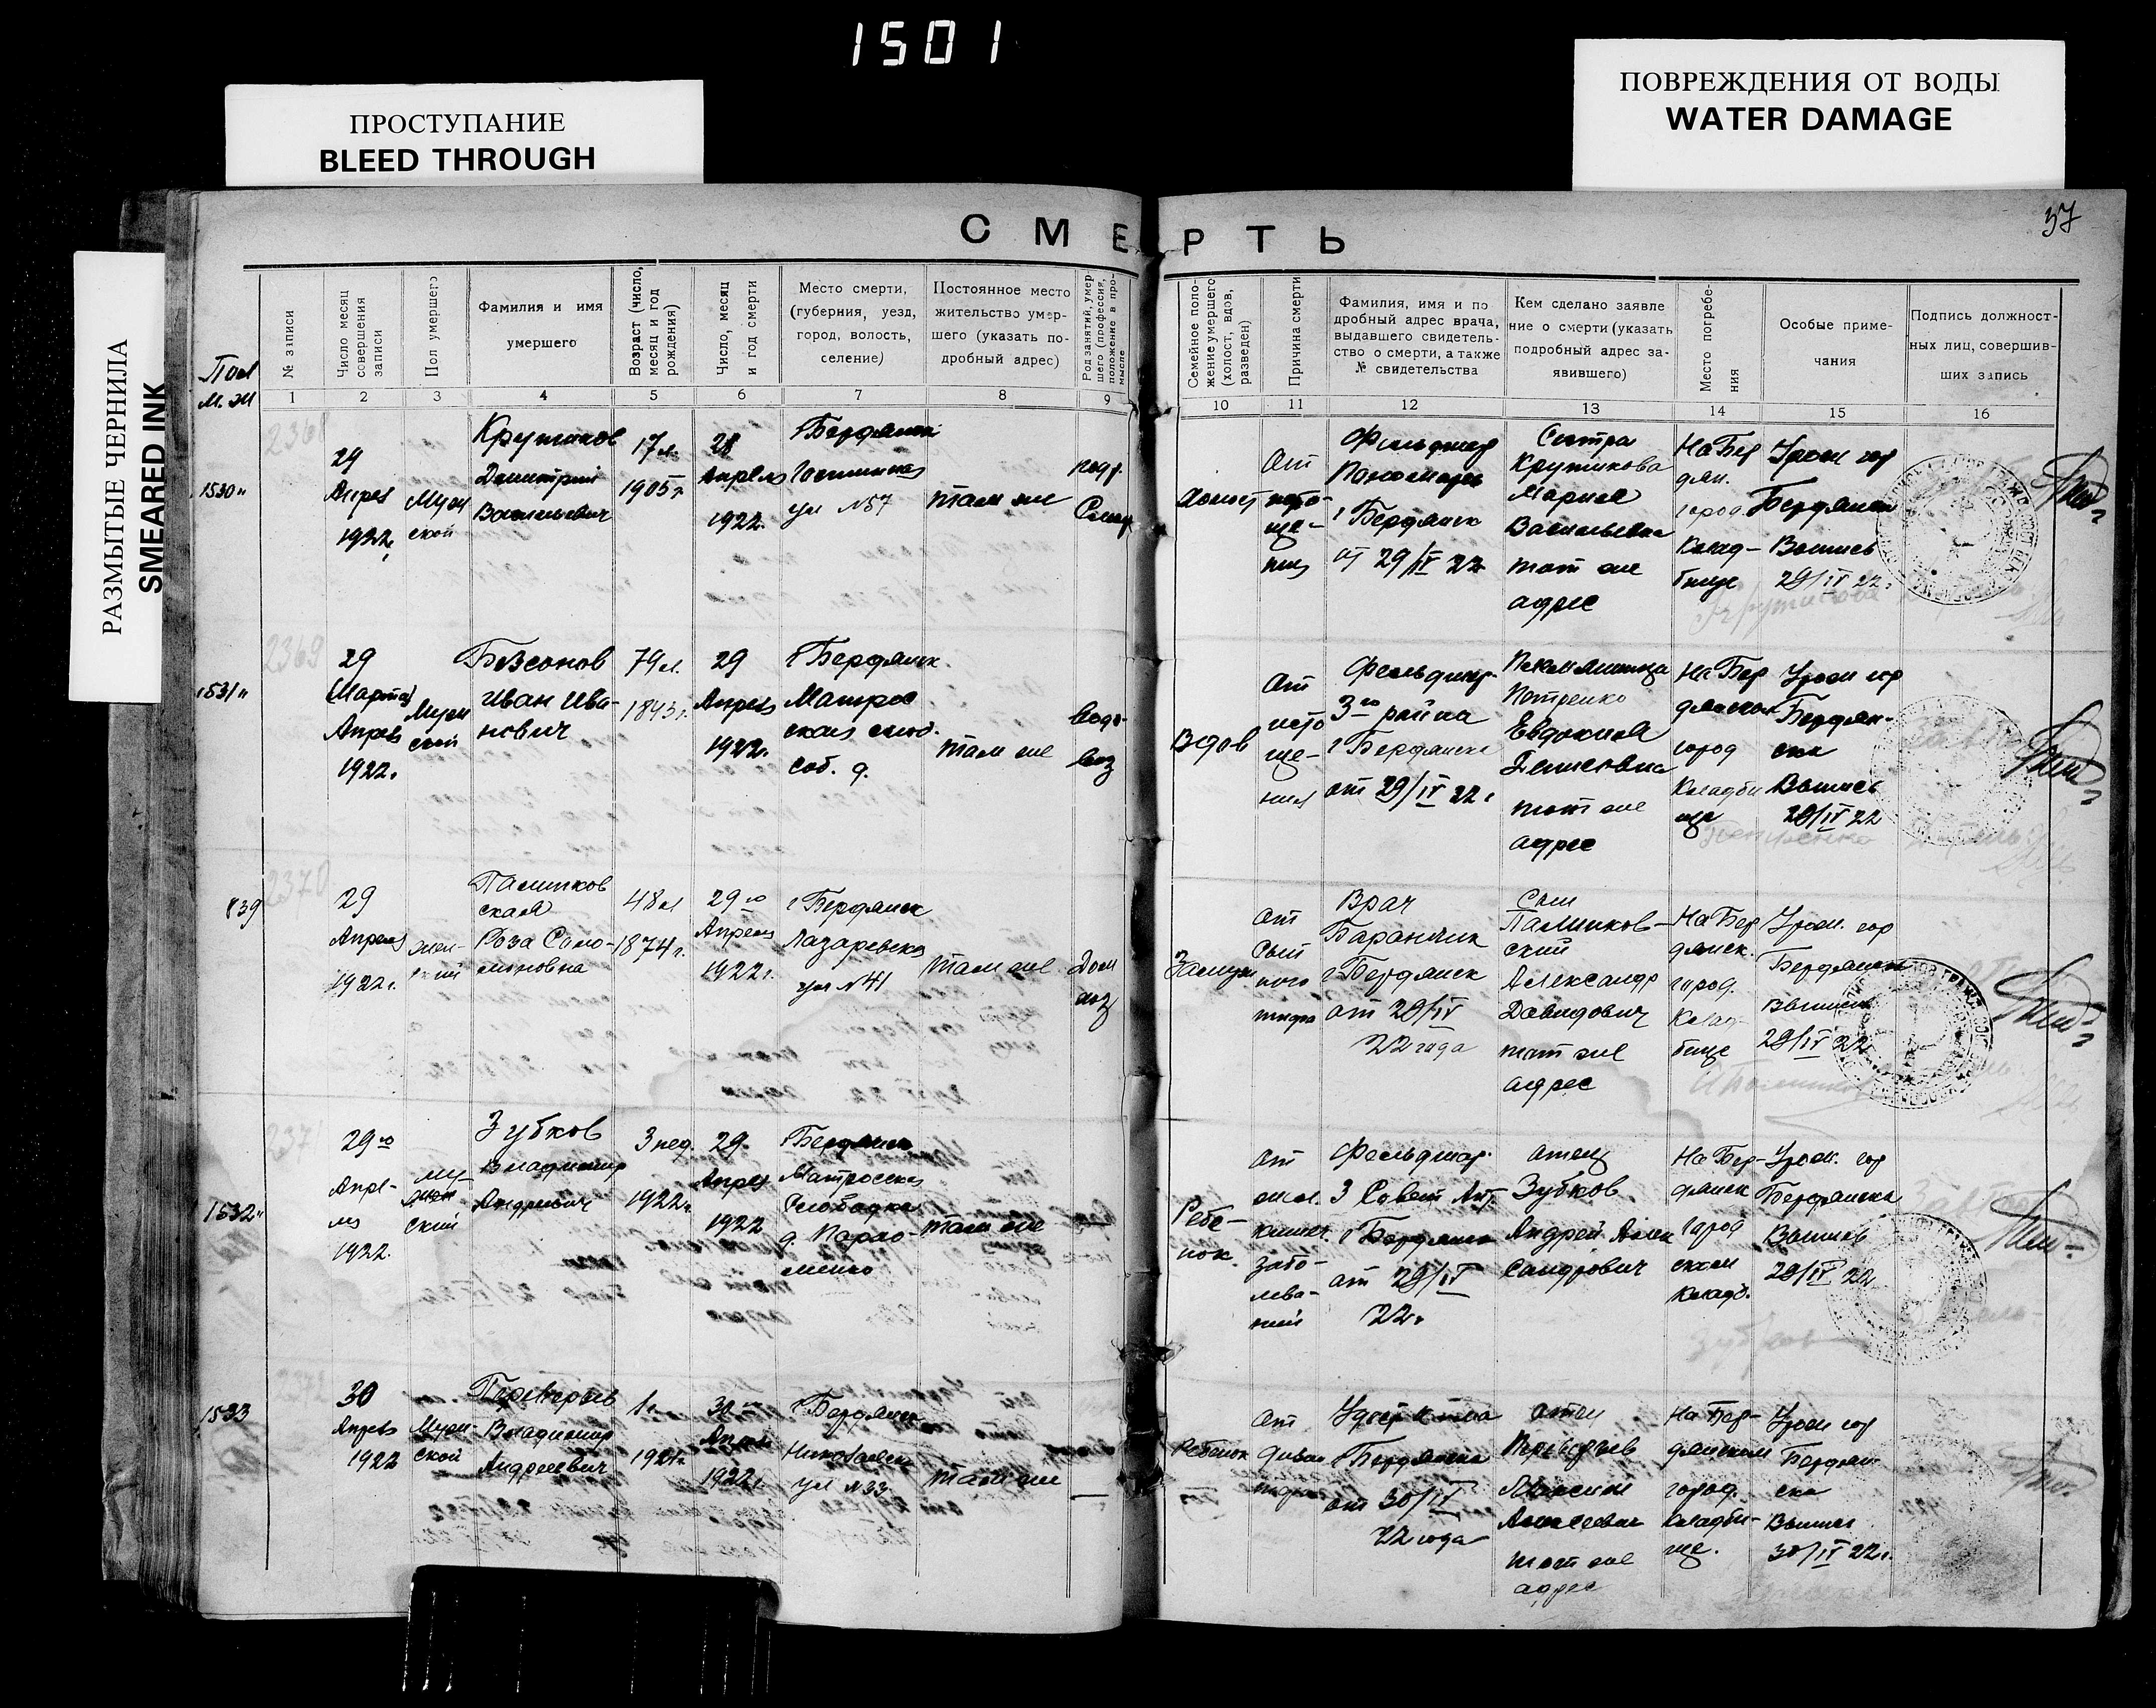 1501
ПРОСТУПАНИЕ
BLEED THROUGH
ПОВРЕЖДЕНИЯ ОТ ВОДЫ
WATER DAMAGE
РАЗМЫТЫЕ ЧЕРНИЛА
SMEARED INK
37
СМЕРТЬ
Пол
М. Ж
№ записи
Число месяц
совершения
записи
Пол умершего
Фамилия и имя
умершего
Возраст (число,
месяц и год
рождения)
Число, месяц
и год смерти
Место смерти,
(губерния, уезд,
город, волость,
селение)
Постоянное место
жительство умер-
шего (указать по-
дробный адрес)
Род занятий, умер
шего (профессия,
положение в про-
мысле
Семейное поло-
жение умершего
(холост, вдов,
разведен)
Причина смерти
Фамилия, имя и по
дробный адрес врача,
выдавшего свидетель-
ство о смерти, а также
№ свидетельства
Кем сделано заявле
ние о смерти (указать
подробный адрес за-
явившего)
Место погребе-
ния
Особые приме-
чания
Подпись должност-
ных лиц, совершив-
ших запись
1 2 3 4 5 6 7 8 9 10 11 12 13 14 15 16
2368
1530"
29
Апрел
1922
Муж
ской
Крутиков
Димитрий
Васильевич
17 л.
1905 г
28
Апрель
1922.
г Бердянск
ул N57
там же
холост
от
Фельдшер
Пономарь
г Бердянск
от 29/IV 22
Сестра
Крутикова
Мария
Васильевна
тот же
адрес
На Бер
дян.
город.
Клад-
бище
Урож гор
Бердянска
Выпись
29/IV 22.
2369
1531"
29
(Марта)
Апрель
1922.
Муж
ской
Безсонов
Иван Ива-
нович
79 л.
1843 г.
29
Апрель
1922.
г Бердянск.
Матрос
ская слоб.
соб. д.
там же
Водо-
воз
Вдов
от
исто
ще-
ния
Фельдшер.
3го района
г Бердянска
от 29/IV 22 г
Племянница
Петренко
Евдокия
Денисовна
тот же
адрес
На Бер
дянском
город
Кладби
ще
Урож гор
Бердян-
ска
Выпись
29/IV 22
2370
839
29
Апрель
1922 г.
жен-
ский
Палинков
ская
Роза Соло-
моновна
48 л
1874 г.
29го
Апреля
1922 г.
г Бердянск
Лазаревская
ул N 41
там же
Дом
хоз
Замуж
от
Сып
ного
тифа
Врач
Баранчик
г Бердянск
от 29/IV
22 года
Сын
Палинков-
ский
Александр
Давидович
тот же
адрес
На Бер
дянск.
город.
Клад-
бище
Урож. гор
Бердянска
Выпись
29/IV 22
2371
1532"
29го
Апре-
ля
1922.
му-
жской
Зубков
Владимир
Андреевич
3 нед.
1922 г.
29.
Апрел
1922
г Бердянск
Матросская
Слободка
там же
Ребе-
нок.
от
жел.
кишеч.
забо-
лева-
ний
Фельдшер.
г Бердянск
от 29/IV
22 г.
отец
Зубков
Андрей Алек
сандрович
На Бер-
дянск
город
ском
кладб.
Урож. гор
Бердянска
Выпись
29/IV 22
2372
1533
30
Апрель
1922
Муж-
ской
Владимир
Андреевич
1 г.
1921 г.
30го
Апреля
1922 г.
г Бердянск
Николаевск
ул N 33
там же
—
Ребенок
от
г Бердянска
от 30/IV
22 года
отец
тот же
адрес
На Бер-
дянском
город.
кладби-
ще.
Урож гор
Бердян-
ска
Выпись
30/IV 22 г.